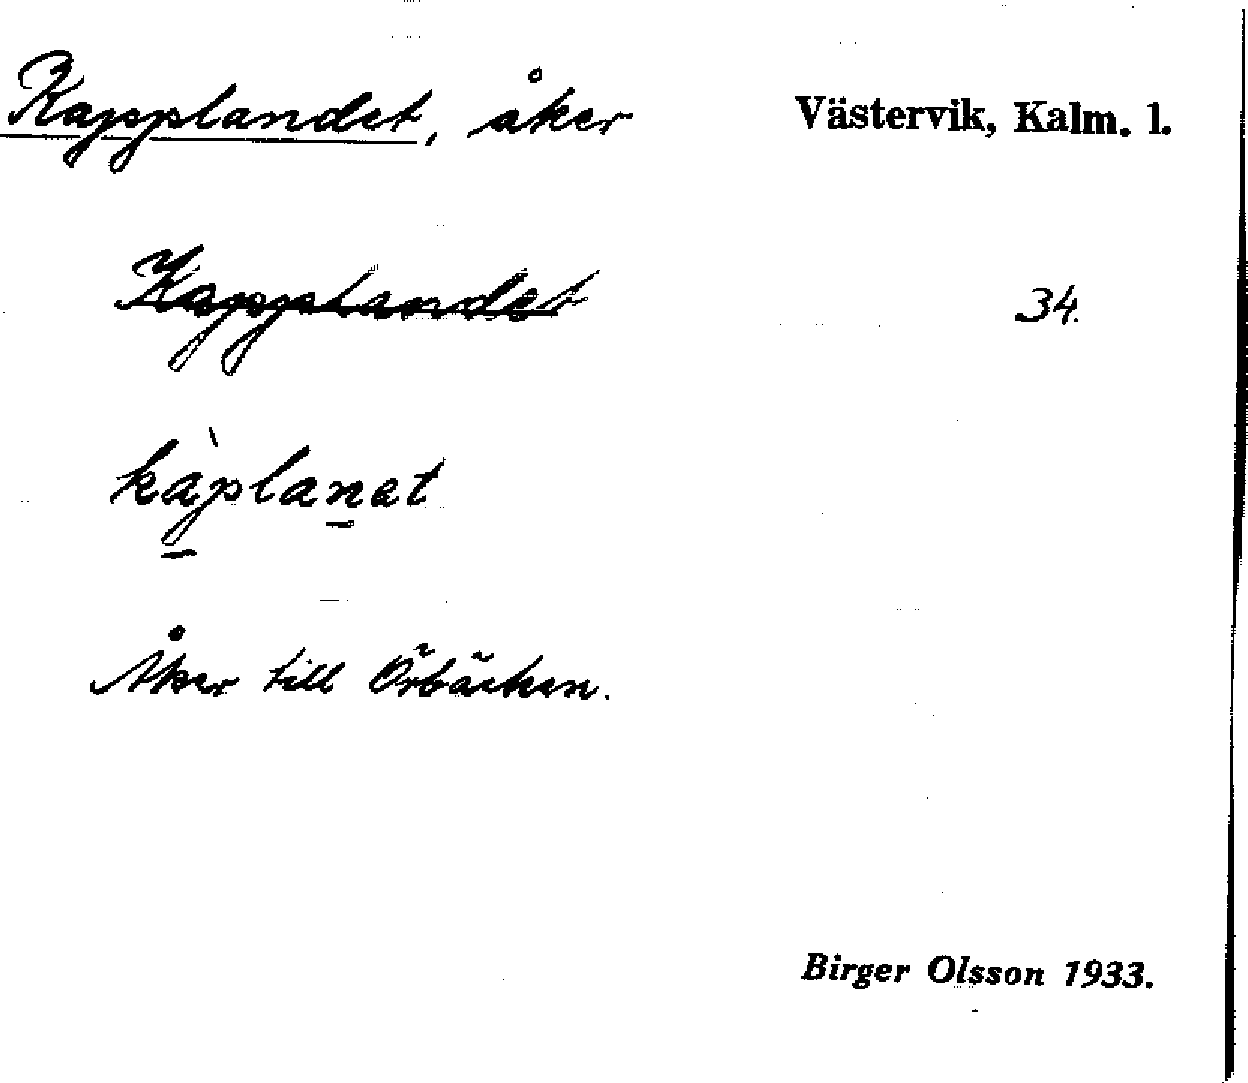 Kapplandet, åker
Västervik, Kalm. l.
Kapplandet
34.
kàplanet
Åker till Örbäcken.
Birger Olsson 1933.